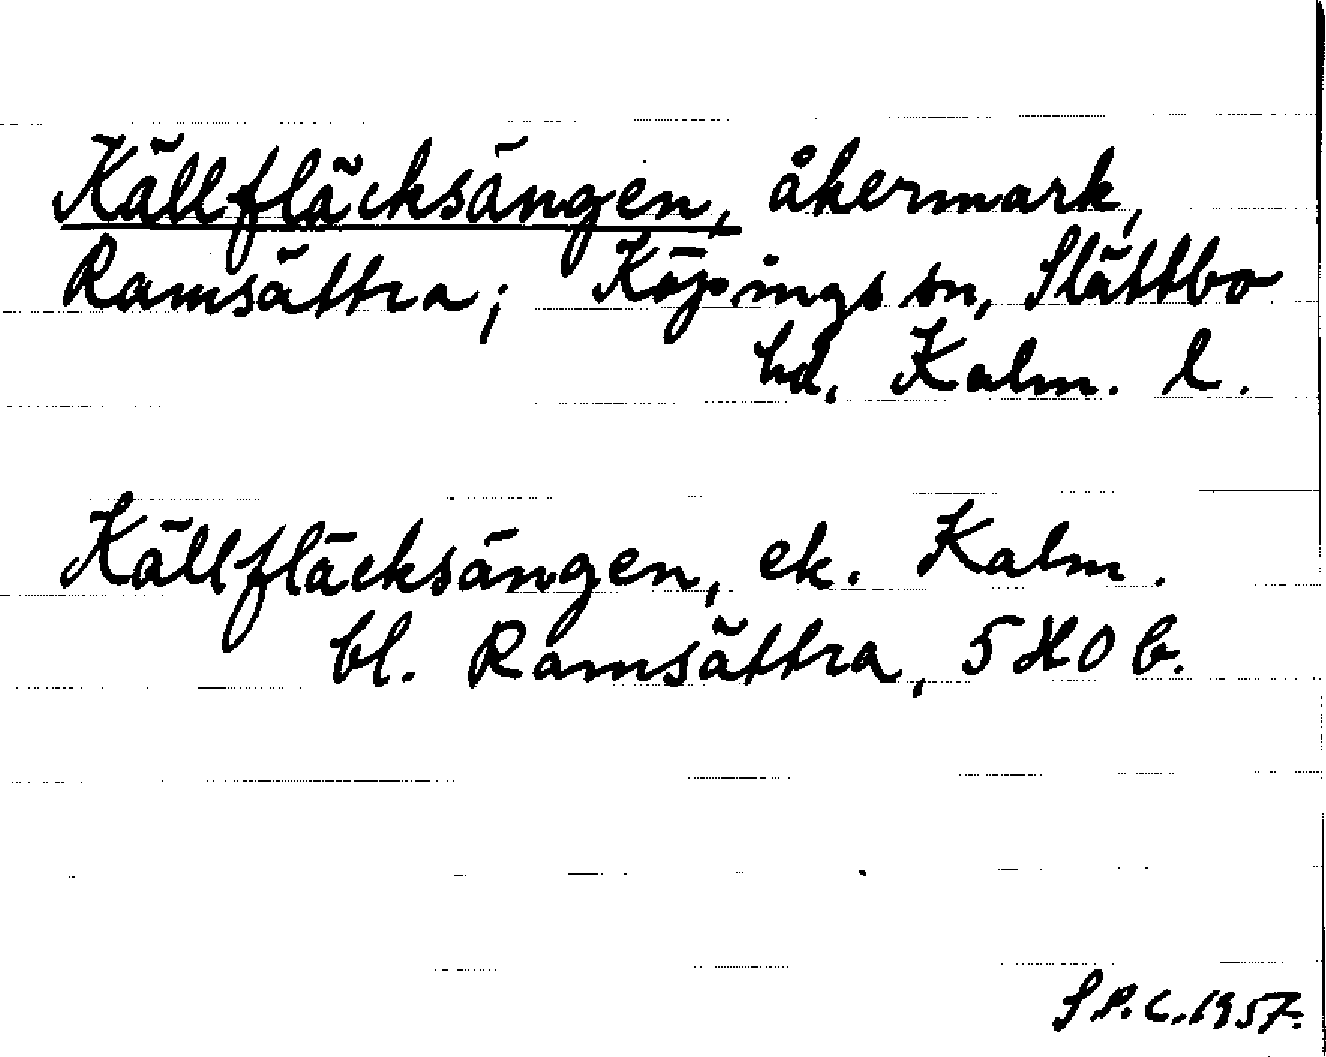 Källfläcksängen, åkermark,
Ramsättra; Köpings sn, Slättbo
hd, Kalm. l.
Källfläcksängen, ek. Kalm.
bl. Ramsättra, 5 H 0 b.
S.P.C. 1957.